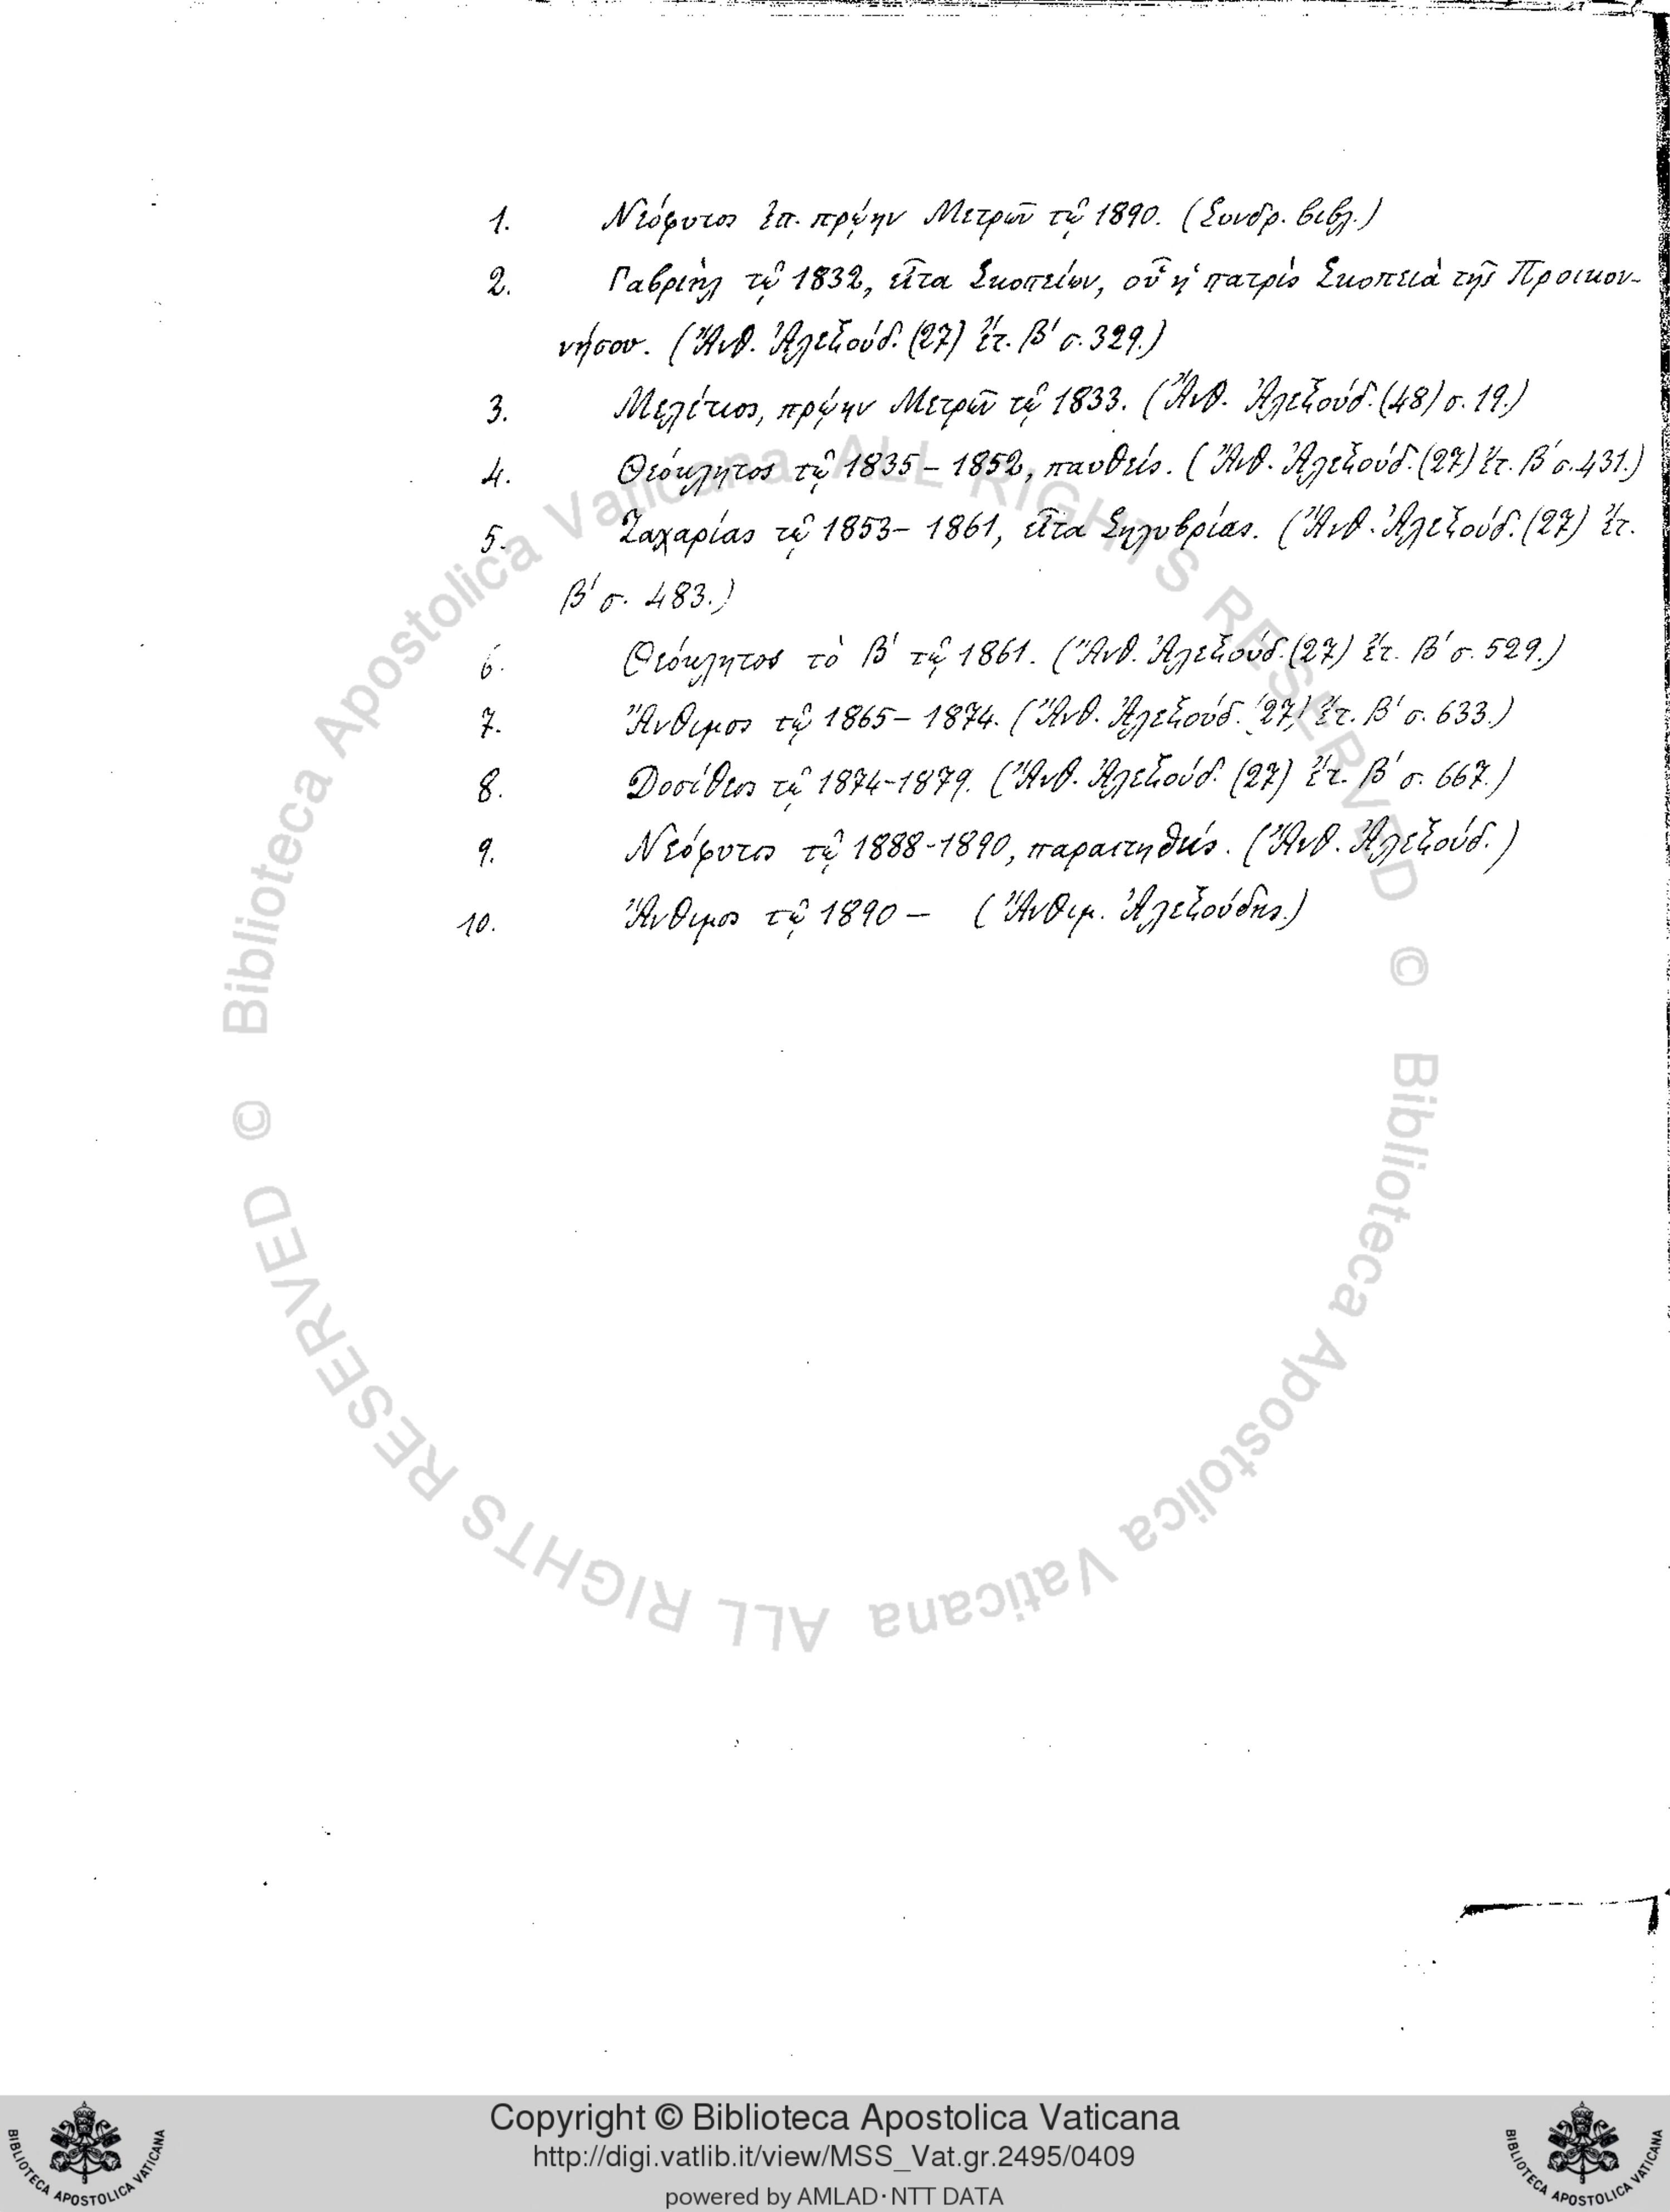 1. Νεόφυτος ἐπ. πρῴην Μετρῶν τῷ 1890. (Συνδρ. βιβλ.)
2. Γαβριὴλ τῷ 1832, εἶτα Σκοπείων, οὗ ἡ πατρὶς Σκοπειὰ τῆς Προικον-
νήσου. (Ἄνθ. Ἀλεξούδ. (27) ἔτ. β' σ. 329.)
3. Μελέτιος, πρῴην Μετρῶν τῷ 1833. (Ἄνθ. Ἀλεξούδ. (48) σ. 19.)
4. Θεόκλητος τῷ 1835 – 1852, παυθείς. (Ἄνθ. Ἀλεξούδ. (27) ἔτ. β' σ. 431.)
5. Ζαχαρίας τῷ 1853 – 1861, εἶτα Σηλυβρίας. (Ἄνθ. Ἀλεξούδ. (27) ἔτ.
β' σ. 483.)
6. Θεόκλητος τὸ β' τῷ 1861. (Ἄνθ. Ἀλεξούδ. (27) ἔτ. β' σ. 529.)
7. Ἄνθιμος τῷ 1865 – 1874. (Ἄνθ. Ἀλεξούδ. (27) ἔτ. β' σ. 633.)
8. Δοσίθεος τῷ 1874-1879. (Ἄνθ. Ἀλεξούδ. (27) ἔτ. β' σ. 667.)
9. Νεόφυτος τῷ 1888-1890, παραιτηθείς. (Ἄνθ. Ἀλεξούδ.)
10. Ἄνθιμος τῷ 1890 – (Ἄνθιμ. Ἀλεξούδης.)
© Biblioteca Apostolica Vaticana ALL RIGHTS RESERVED
© Biblioteca Apostolica Vaticana ALL RIGHTS RESERVED
BIBLIOTECA APOSTOLICA VATICANA
Copyright © Biblioteca Apostolica Vaticana
http://digi.vatlib.it/view/MSS_Vat.gr.2495/0409
powered by AMLAD·NTT DATA
BIBLIOTECA APOSTOLICA VATICANA